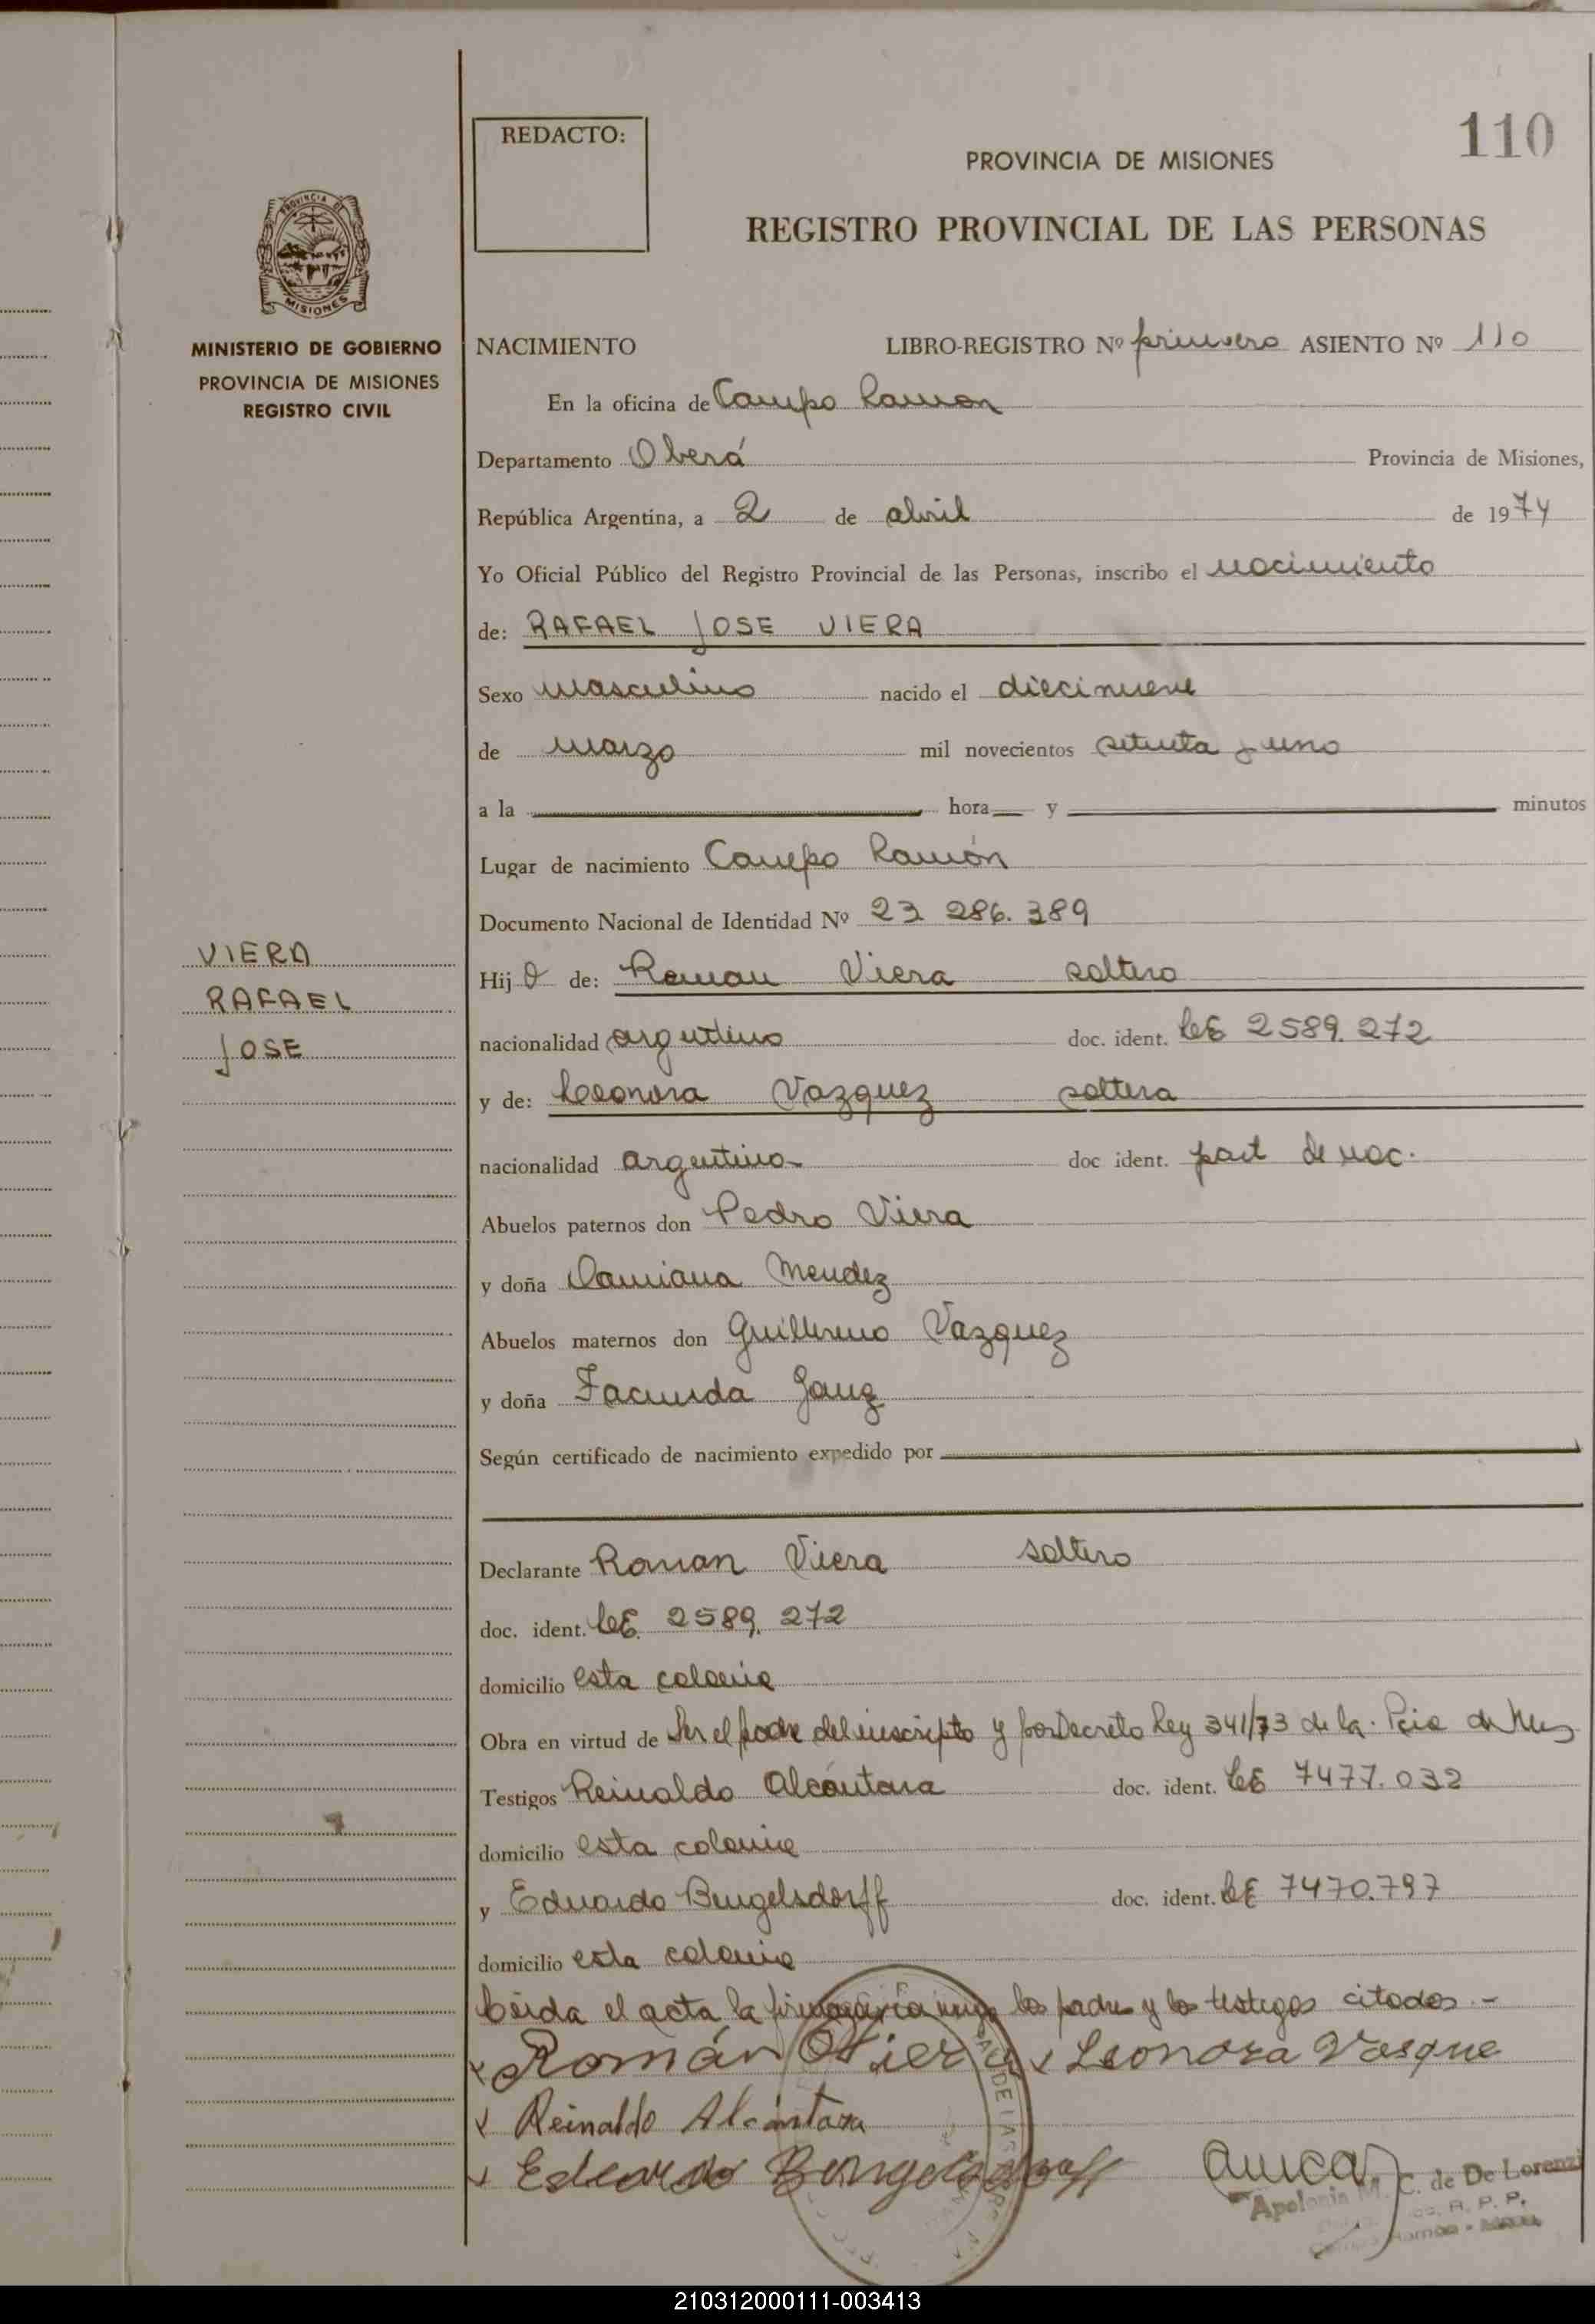 110
REDACTO:
PROVINCIA DE MISIONES
REGISTRO PROVINCIAL DE LAS PERSONAS
PROVINCIA DE
MISIONES
MINISTERIO DE GOBIERNO
PROVINCIA DE MISIONES
REGISTRO CIVIL
NACIMIENTO LIBRO-REGISTRO Nº primero ASIENTO Nº 110
En la oficina de Campo Ramon
Departamento Oberá Provincia de Misiones,
República Argentina, a 2 de abril de 1974
Yo Oficial Público del Registro Provincial de las Personas, inscribo el nacimiento
de: RAFAEL JOSE VIERA
Sexo masculino nacido el diecinueve
de marzo mil novecientos setenta y uno
a la hora y minutos
Lugar de nacimiento Campo Ramón
Documento Nacional de Identidad Nº 23 286.389
VIERA
RAFAEL
JOSE
Hijo de: Roman Viera soltero
nacionalidad argentino doc. ident. LE 2589.272
y de: Leonora Vazquez soltera
nacionalidad argentina doc ident. part de nac.
Abuelos paternos don Pedro Viera
y doña Damiana Mendez
Abuelos maternos don Guillermo Vazquez
y doña Facunda
Según certificado de nacimiento expedido por
Declarante Roman Viera soltero
doc. ident. LE 2589.272
domicilio esta colonia
Obra en virtud de Ser el padre del inscripto y por Decreto Ley 341/73 de la Pcia de Mnes
Testigos Reinaldo Alcántara doc. ident. LE 7477.032
domicilio esta colonia
y Eduardo Bengelsdorff doc. ident. LE 7470.797
domicilio esta colonia
Leída el acta la firman los padres y los testigos citados.-
x Román Viera x Leonora Vasque
x Reinaldo Alcántara
x Eduardo Bengelsdorff
Apolonia M. C. de De Lorenzi
R. P. P.
Ramón -
210312000111-003413